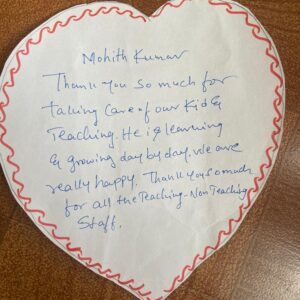 Mohith Kumar
Thank you so much for
taking care of our Kid &
Teaching. He is learning
& growing day by day. We are
really happy. Thank you so much
for all the Teaching - Non Teaching
Staff.